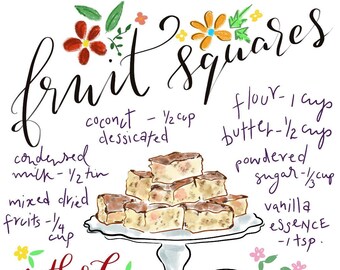 fruit squares
coconut - 1/2 cup
dessicated
flour - 1 cup
butter - 1/2 cup
condensed
milk - 1/2 tin
powdered
sugar - 1/3 cup
mixed dried
fruits - 1/4
cup
vanilla
essence
- 1 tsp.